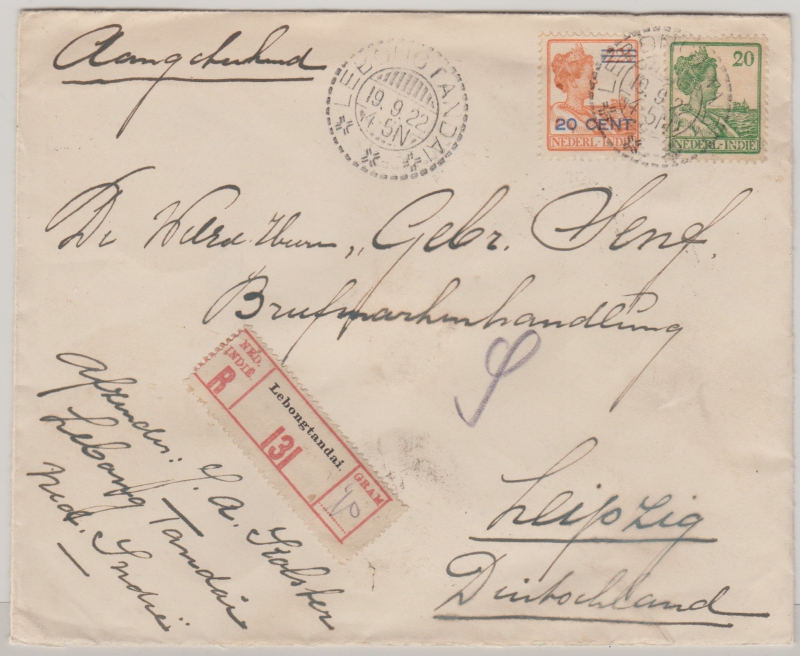 Aangetekend
LEBONGTANDAI
19.9.22
4-5N
20 CENT
NEDERL-INDIË
20
NEDERL-INDIË
19.9.22
4-5N
De Weled. Heeren „Gebr. Senf.
Briefmarkenhandlung
Leipzig
Duitschland
NED. INDIË
R
131
Lebongtandai.
GRAM
40
Afzender: J. A. Stolster
Lebong Tandai
Ned. Indië